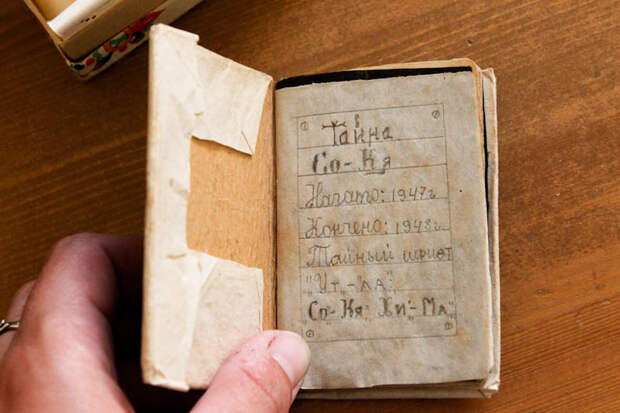 Тайна
Со-Кя
Начато: 1947г
Кончено: 1948г.
Тайный шрифт
"Ит"-"ла".
"Со"-"Кя" "Хи"-"Ма"